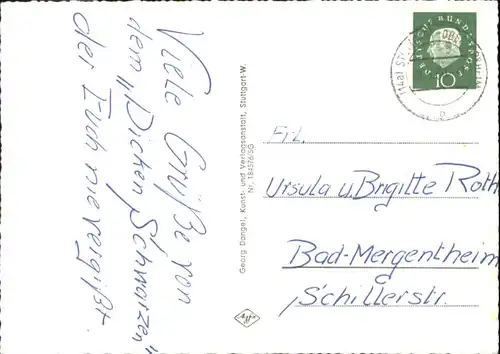 Viele Grüße von
dem „Dicken Schwarzen"
der Euch nie vergißt.
Georg Dangel, Kunst- und Verlagsanstalt, Stuttgart-W.
Nr. 184576/5G
Agfa
DEUTSCHE BUNDESPOST
10
(14a)
Frl.
Ursula u. Brigitte Roth
Bad-Mergentheim
Schillerstr.